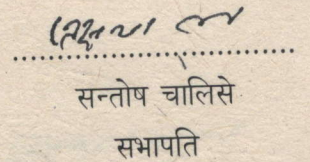 सन्तोष चालिसे
सभापति